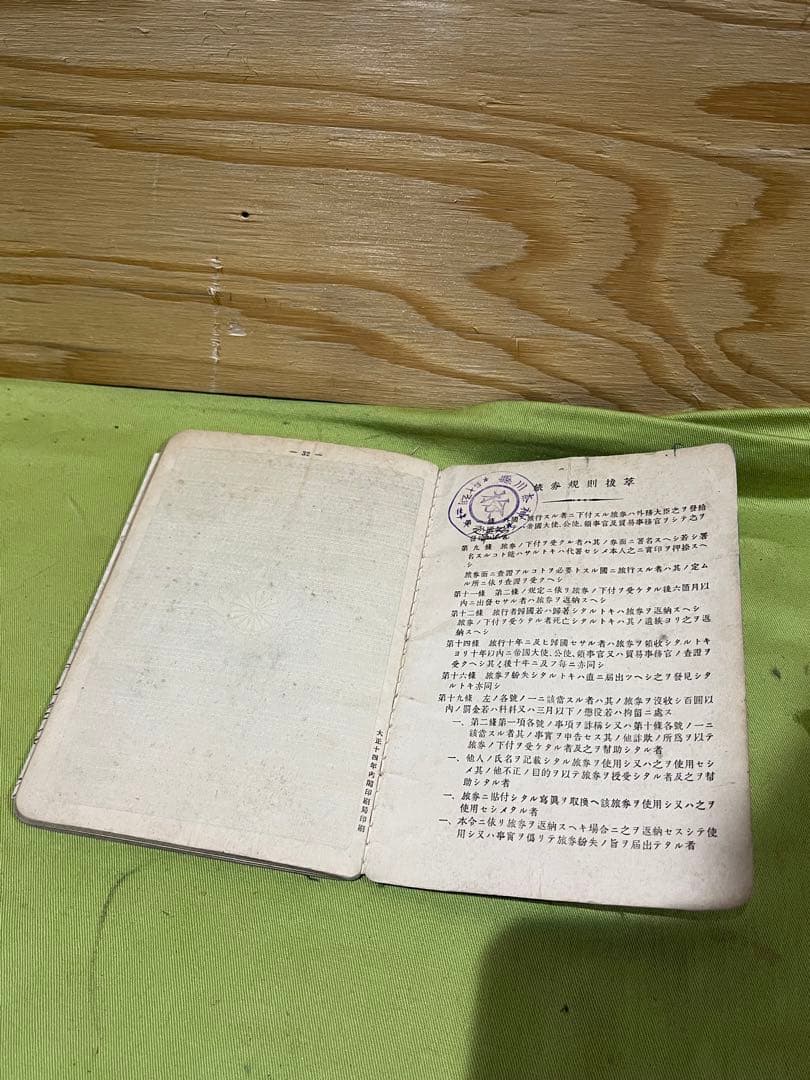 — 32 —
大正十四年內閣印刷局印刷
旅券規則拔萃
國ニ旅行スル者ニ下付スル旅券ハ外務大臣之ヲ發給
帝國大使、公使、領事官及貿易事務官ヲシテ之ヲ
第九條 旅券ノ下付ヲ受クル者ハ其ノ券面ニ署名スヘシ若シ署
名スルコト能ハサルトキハ代署セシメ本人之ニ實印ヲ押捺スヘ
シ
旅券面ニ査證アルコトヲ必要トスル國ニ旅行スル者ハ其ノ定ム
ル所ニ依リ査證ヲ受クヘシ
第十一條 第二條ノ規定ニ依リ旅券ノ下付ヲ受ケタル後六箇月以
內ニ出發セサル者ハ旅券ヲ返納スヘシ
第十二條 旅行者歸國若ハ歸著シタルトキハ旅券ヲ返納スヘシ
旅券ノ下付ヲ受ケタル者死亡シタルトキハ其ノ遺族ヨリ之ヲ返
納スヘシ
第十四條 旅行十年ニ及ヒ歸國セサル者ハ旅券ヲ領收シタルトキ
ヨリ十年以內ニ帝國大使、公使、領事官又ハ貿易事務官ノ査證ヲ
受クヘシ其ノ後十年ニ及フ每ニ亦同シ
第十六條 旅券ヲ紛失シタルトキハ直ニ届出ツヘシ之ヲ發見シタ
ルトキ亦同シ
第十九條 左ノ各號ノ一ニ該當スル者ハ其ノ旅券ヲ沒收シ百圓以
內ノ罰金若ハ科料又ハ三月以下ノ懲役若ハ拘留ニ處ス
一、第二條第一項各號ノ事項ヲ詐稱シ又ハ第十條各號ノ一ニ
該當スル者其ノ事實ヲ申告セス其ノ他詐欺ノ所爲ヲ以テ
旅券ノ下付ヲ受ケタル者及之ヲ幇助シタル者
一、他人ノ氏名ヲ記載シタル旅券ヲ使用シ又ハ之ヲ使用セシ
メ其ノ他不正ノ目的ヲ以テ旅券ヲ授受シタル者及之ヲ幇
助シタル者
一、旅券ニ貼付シタル寫眞ヲ取換ヘ該旅券ヲ使用シ又ハ之ヲ
使用セシメタル者
一、本令ニ依リ旅券ヲ返納スヘキ場合ニ之ヲ返納セスシテ使
用シ又ハ事實ヲ僞リテ旅券紛失ノ旨ヲ届出テタル者